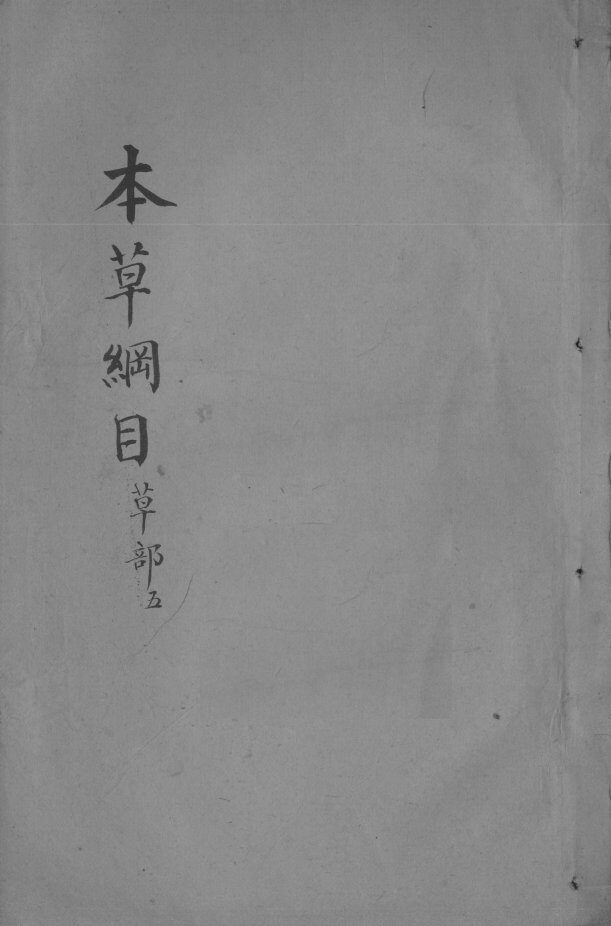 本草綱目草部五